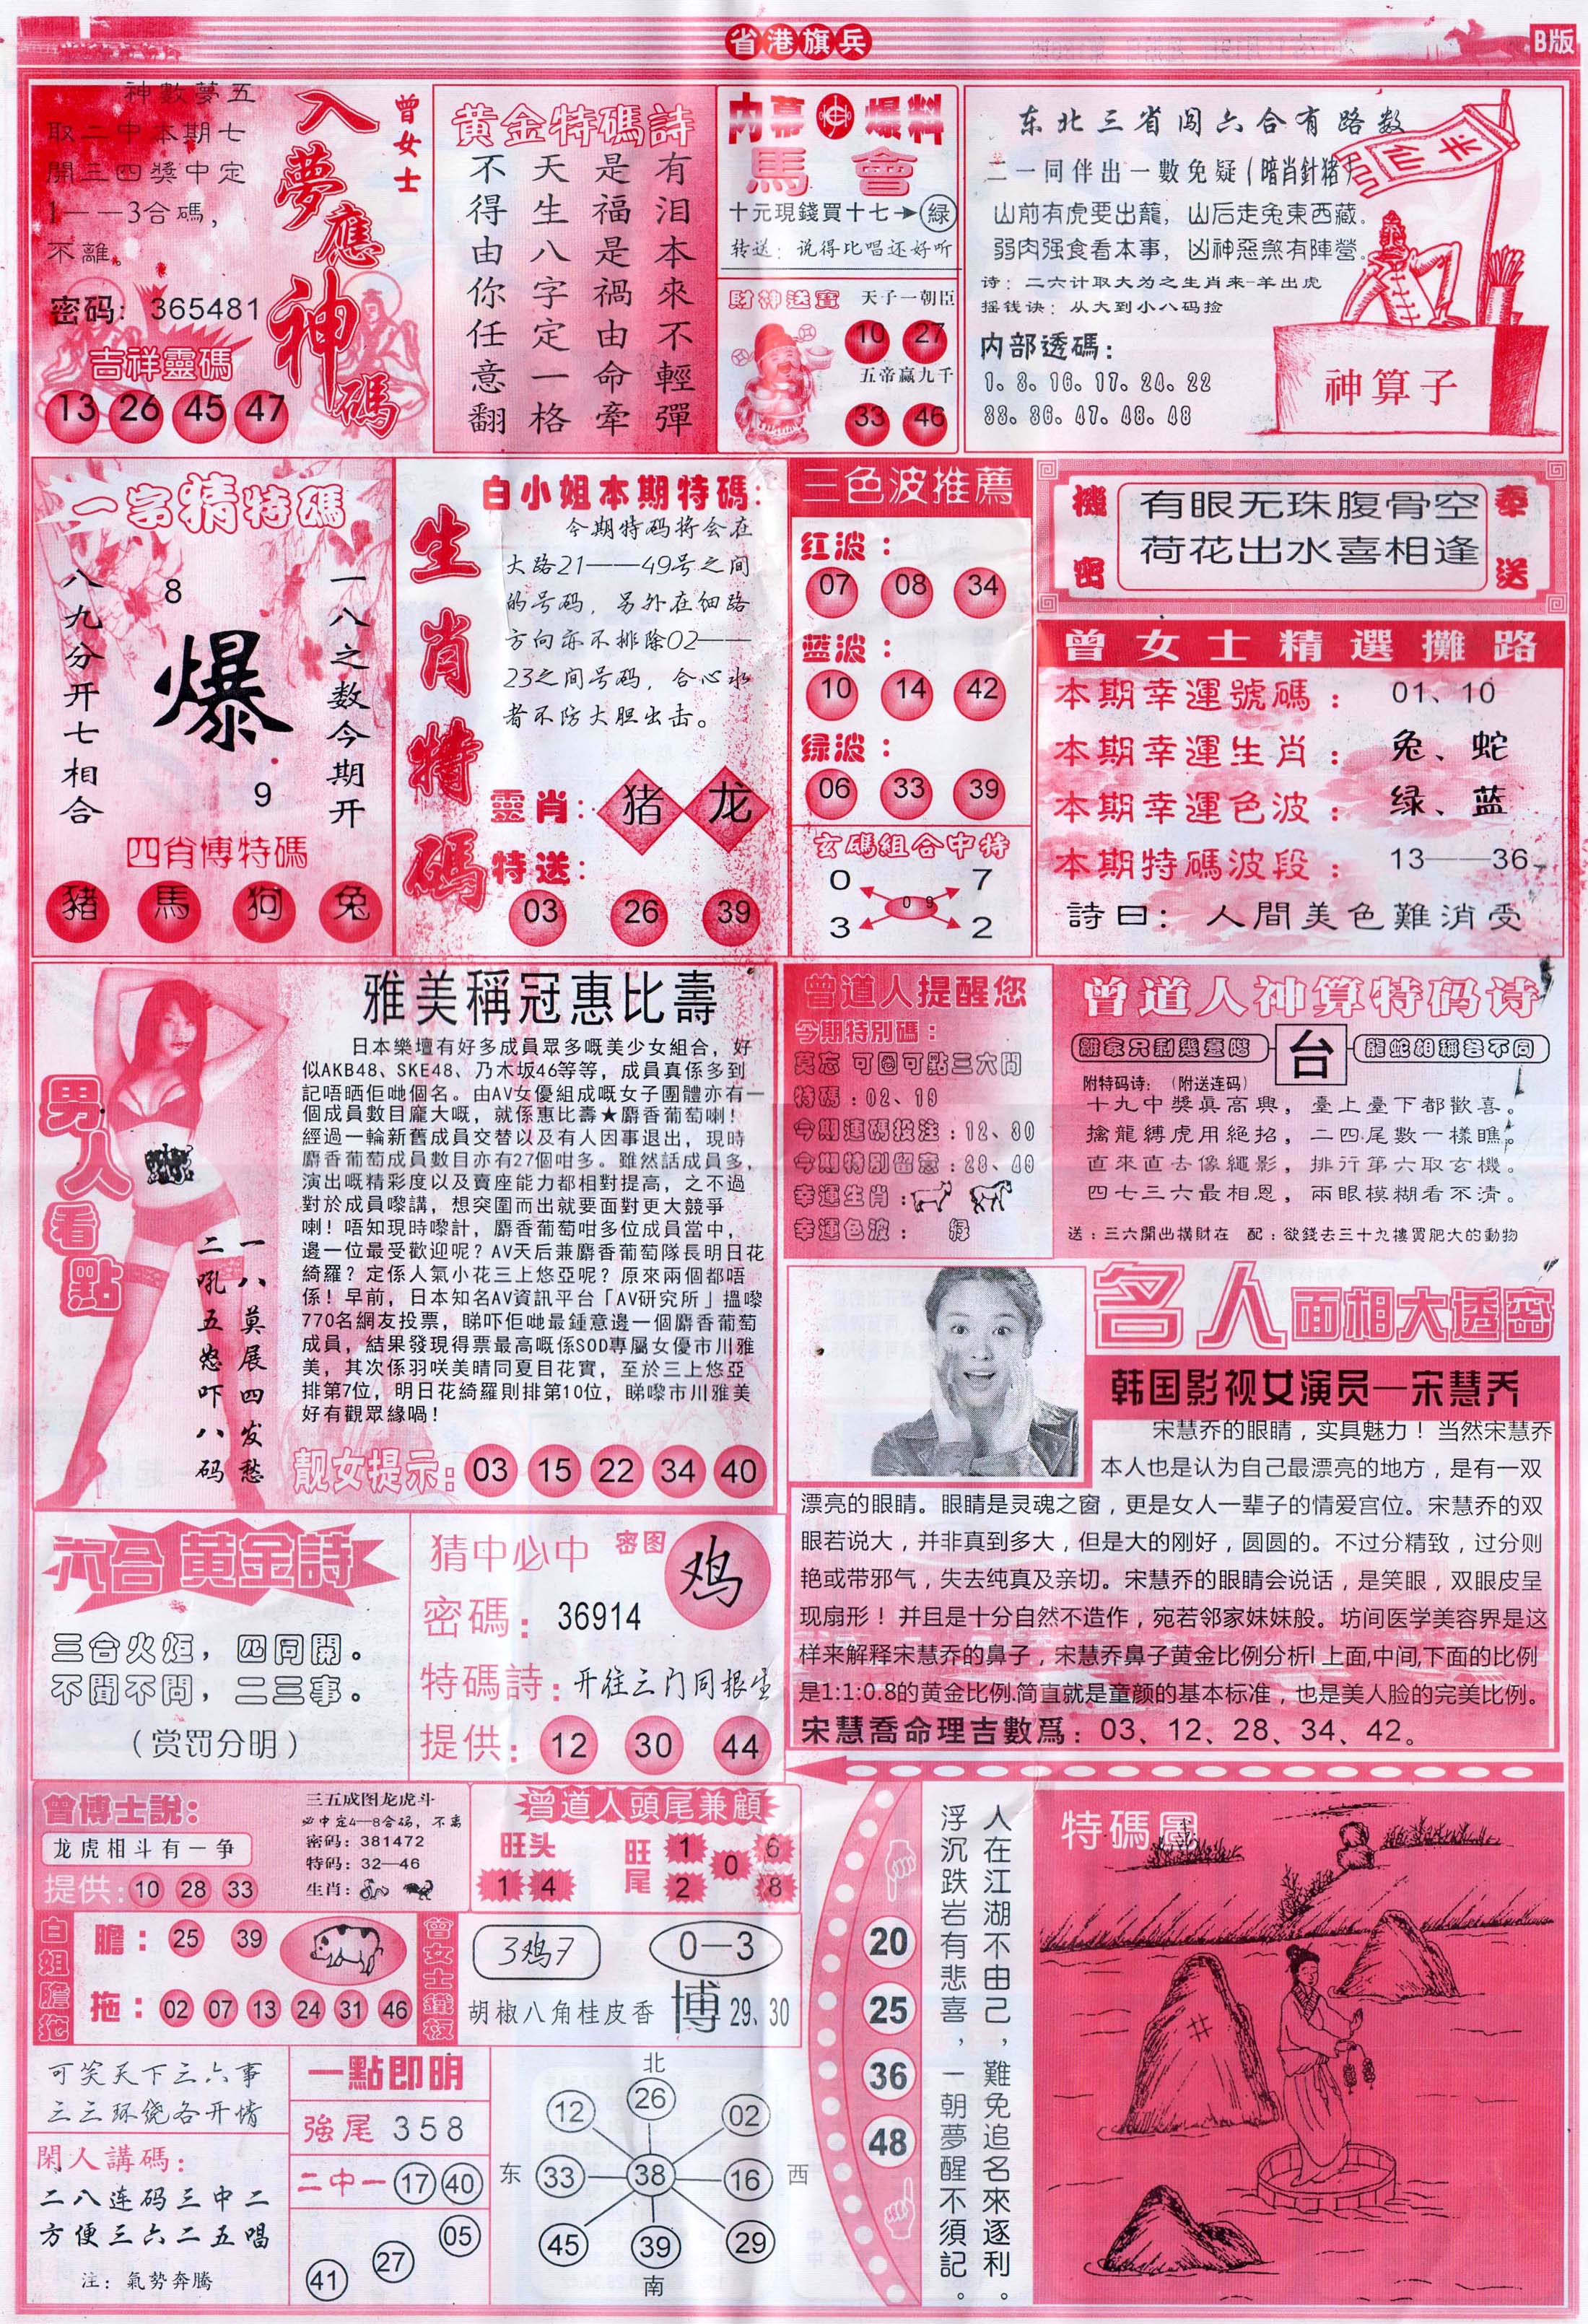 省港旗兵
B版
神數夢五
取二中本期七
開三四獎中定
1——3合碼，
不離。
密码：365481
吉祥靈碼
13 26 45 47
曾女士
入夢應神碼
黃金特碼詩
有泪本來不輕彈
是福是禍由命牽
天生八字定一格
不得由你任意翻
内幕爆料
馬會
十元現錢買十七→綠
转送：说得比唱还好听
財神送寶
天子一朝臣
10 27
五帝赢九千
33 46
东北三省闯六合有路数
二一同伴出一數免疑(暗肖針猪)
山前有虎要出龍，山后走兔東西藏。
弱肉强食看本事，凶神惡煞有陣營。
诗：二六计取大为之生肖来-羊出虎
摇钱诀：从大到小八码捡
内部透碼：
1. 8. 16. 17. 24. 22
33. 36. 47. 48. 48
半仙
神算子
一字猜特碼
一八之数今期开
8
爆
9
八九分开七相合
四肖博特碼
豬 馬 狗 兔
生肖特碼
白小姐本期特碼：
今期特码将会在
大路21——49号之间
的号码，另外在细路
方向亦不排除02——
23之间号码，合心水
者不防大胆出击。
靈肖：猪 龙
特送：
03 26 39
三色波推薦
红波：
07 08 34
蓝波：
10 14 42
绿波：
06 33 39
玄碼組合中特
0 7
0 9
3 2
機密
有眼无珠腹骨空
荷花出水喜相逢
奉送
曾女士精選攤路
本期幸運號碼：01、10
本期幸運生肖：兔、蛇
本期幸運色波：绿、蓝
本期特碼波段：13——36
詩曰：人間美色難消受
男人看點
一八莫展四发愁
二吼五怒吓八码
雅美稱冠惠比壽
日本樂壇有好多成員眾多嘅美少女組合，好
似AKB48、SKE48、乃木坂46等等，成員真係多到
記唔晒佢哋個名。由AV女優組成嘅女子團體亦有一
個成員數目龐大嘅，就係惠比壽★麝香葡萄喇！
經過一輪新舊成員交替以及有人因事退出，現時
麝香葡萄成員數目亦有27個咁多。雖然話成員多，
演出嘅精彩度以及賣座能力都相對提高，之不過
對於成員嚟講，想突圍而出就要面對更大競爭
喇！唔知現時嚟計，麝香葡萄咁多位成員當中，
邊一位最受歡迎呢？AV天后兼麝香葡萄隊長明日花
綺羅？定係人氣小花三上悠亞呢？原來兩個都唔
係！早前，日本知名AV資訊平台「AV研究所」搵嚟
770名網友投票，睇吓佢哋最鍾意邊一個麝香葡萄
成員，結果發現得票最高嘅係SOD專屬女優市川雅
美，其次係羽咲美晴同夏目花實，至於三上悠亞
排第7位，明日花綺羅則排第10位，睇嚟市川雅美
好有觀眾緣喎！
靓女提示：03 15 22 34 40
曾道人提醒您
今期特別碼：
莫忘 可圈可點三六問
特碼：02、19
今期連碼投注：12、30
今期特別留意：28、49
幸運生肖：
幸運色波： 緑
曾道人神算特码诗
離家只剩幾臺階
台
龍蛇相稱各不同
附特码诗：（附送连码）
十九中獎眞高興，臺上臺下都歡喜。
擒龍縛虎用絕招，二四尾數一樣瞧。
直來直去像繩影，排行第六取玄機。
四七三六最相恩，兩眼模糊看不清。
送：三六開出橫財在 配：欲錢去三十九樓買肥大的動物
名人面相大透密
韩国影视女演员—宋慧乔
宋慧乔的眼睛，实具魅力！当然宋慧乔
本人也是认为自己最漂亮的地方，是有一双
漂亮的眼睛。眼睛是灵魂之窗，更是女人一辈子的情爱宫位。宋慧乔的双
眼若说大，并非真到多大，但是大的刚好，圆圆的。不过分精致，过分则
艳或带邪气，失去纯真及亲切。宋慧乔的眼睛会说话，是笑眼，双眼皮呈
现扇形！并且是十分自然不造作，宛若邻家妹妹般。坊间医学美容界是这
样来解释宋慧乔的鼻子，宋慧乔鼻子黄金比例分析! 上面,中间,下面的比例
是1:1:0.8的黄金比例.简直就是童颜的基本标准，也是美人脸的完美比例。
宋慧喬命理吉數爲：03、12、28、34、42。
六合黄金詩
三合火炬，四同開。
不聞不問，二三事。
（赏罚分明）
猜中必中 密图 鸡
密碼：36914
特碼詩：开往三门同根生
提供：12 30 44
曾博士說：
龙虎相斗有一争
提供：10 28 33
三五成图龙虎斗
必中定4—8合码，不离
密码：381472
特码：32—46
生肖：
曾道人頭尾兼顧
旺头
1 4
旺尾
1 6
0
2 8
白姐膽拖
膽：25 39
拖：02 07 13 24 31 46
曾女士鐵板
3鸡7
0—3
胡椒八角桂皮香 博 29、30
可笑天下三六事
三三环绕各开情
閑人講碼：
二八连码三中二
方便三六二五唱
注：氣勢奔騰
一點即明
強尾 358
二中一 17 40
05
27
41
北
12 26 02
东 33 38 16 西
45 39 29
南
20
25
36
48
人在江湖不由己，難免追名來逐利。
浮沉跌岩有悲喜，一朝夢醒不須記。
特碼圖
井